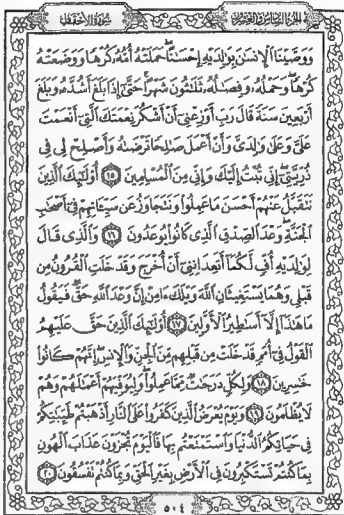 الجزء السادس والعشرون
سورة الأحقاف
وَوَصَّيْنَا ٱلْإِنسَٰنَ بِوَٰلِدَيْهِ إِحْسَٰنًا ۖ حَمَلَتْهُ أُمُّهُۥ كُرْهًا وَوَضَعَتْهُ
كُرْهًا ۖ وَحَمْلُهُۥ وَفِصَٰلُهُۥ ثَلَٰثُونَ شَهْرًا ۚ حَتَّىٰٓ إِذَا بَلَغَ أَشُدَّهُۥ وَبَلَغَ
أَرْبَعِينَ سَنَةً قَالَ رَبِّ أَوْزِعْنِىٓ أَنْ أَشْكُرَ نِعْمَتَكَ ٱلَّتِىٓ أَنْعَمْتَ
عَلَىَّ وَعَلَىٰ وَٰلِدَىَّ وَأَنْ أَعْمَلَ صَٰلِحًا تَرْضَىٰهُ وَأَصْلِحْ لِى فِى
ذُرِّيَّتِىٓ ۖ إِنِّى تُبْتُ إِلَيْكَ وَإِنِّى مِنَ ٱلْمُسْلِمِينَ ١٥ أُو۟لَٰٓئِكَ ٱلَّذِينَ
نَتَقَبَّلُ عَنْهُمْ أَحْسَنَ مَا عَمِلُوا۟ وَنَتَجَاوَزُ عَن سَيِّـَٔاتِهِمْ فِىٓ أَصْحَٰبِ
ٱلْجَنَّةِ ۖ وَعْدَ ٱلصِّدْقِ ٱلَّذِى كَانُوا۟ يُوعَدُونَ ١٦ وَٱلَّذِى قَالَ
لِوَٰلِدَيْهِ أُفٍّ لَّكُمَآ أَتَعِدَانِنِىٓ أَنْ أُخْرَجَ وَقَدْ خَلَتِ ٱلْقُرُونُ مِن
قَبْلِى وَهُمَا يَسْتَغِيثَانِ ٱللَّهَ وَيْلَكَ ءَامِنْ إِنَّ وَعْدَ ٱللَّهِ حَقٌّ فَيَقُولُ
مَا هَٰذَآ إِلَّآ أَسَٰطِيرُ ٱلْأَوَّلِينَ ١٧ أُو۟لَٰٓئِكَ ٱلَّذِينَ حَقَّ عَلَيْهِمُ
ٱلْقَوْلُ فِىٓ أُمَمٍ قَدْ خَلَتْ مِن قَبْلِهِم مِّنَ ٱلْجِنِّ وَٱلْإِنسِ ۖ إِنَّهُمْ كَانُوا۟
خَٰسِرِينَ ١٨ وَلِكُلٍّ دَرَجَٰتٌ مِّمَّا عَمِلُوا۟ ۖ وَلِيُوَفِّيَهُمْ أَعْمَٰلَهُمْ وَهُمْ
لَا يُظْلَمُونَ ١٩ وَيَوْمَ يُعْرَضُ ٱلَّذِينَ كَفَرُوا۟ عَلَى ٱلنَّارِ أَذْهَبْتُمْ طَيِّبَٰتِكُمْ
فِى حَيَاتِكُمُ ٱلدُّنْيَا وَٱسْتَمْتَعْتُم بِهَا فَٱلْيَوْمَ تُجْزَوْنَ عَذَابَ ٱلْهُونِ
بِمَا كُنتُمْ تَسْتَكْبِرُونَ فِى ٱلْأَرْضِ بِغَيْرِ ٱلْحَقِّ وَبِمَا كُنتُمْ تَفْسُقُونَ ٢٠
٥٠٤